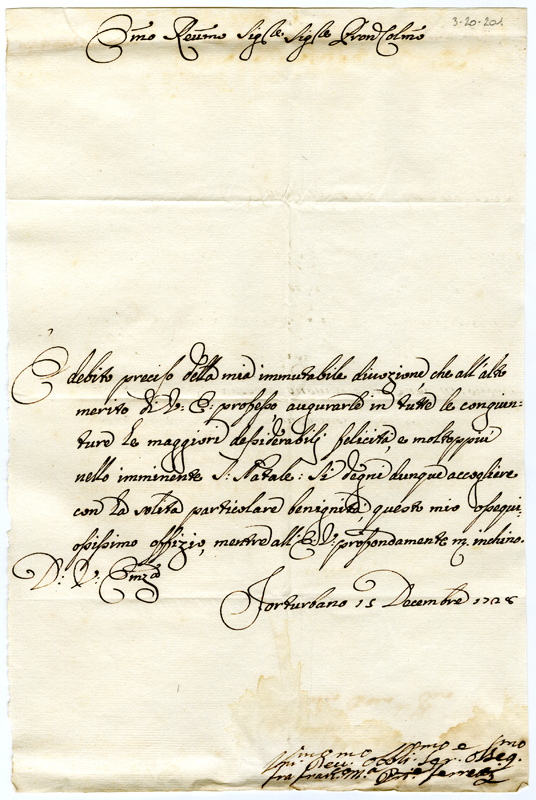 3-20-201
Emo Reumo Sigre Sigre Pron Colmo
È debito preciso della mia immutabile divozione che all'alto
merito di V. E. professo, augurarle in tutte le congiun=
ture le maggiori desiderabili felicità, e moltoppiù
nello imminente S. Natale: Si degni dunque accogliere
con la solita particolare benignità, questo mio ossequi=
osissimo offizio, mentre all'E. V. profondamente m'inchino.
D. V. Emza
Forturbano 15 Decembre 1728
Umo Devmo Obbli. ser. osseq.mo
fra Fran. Ma